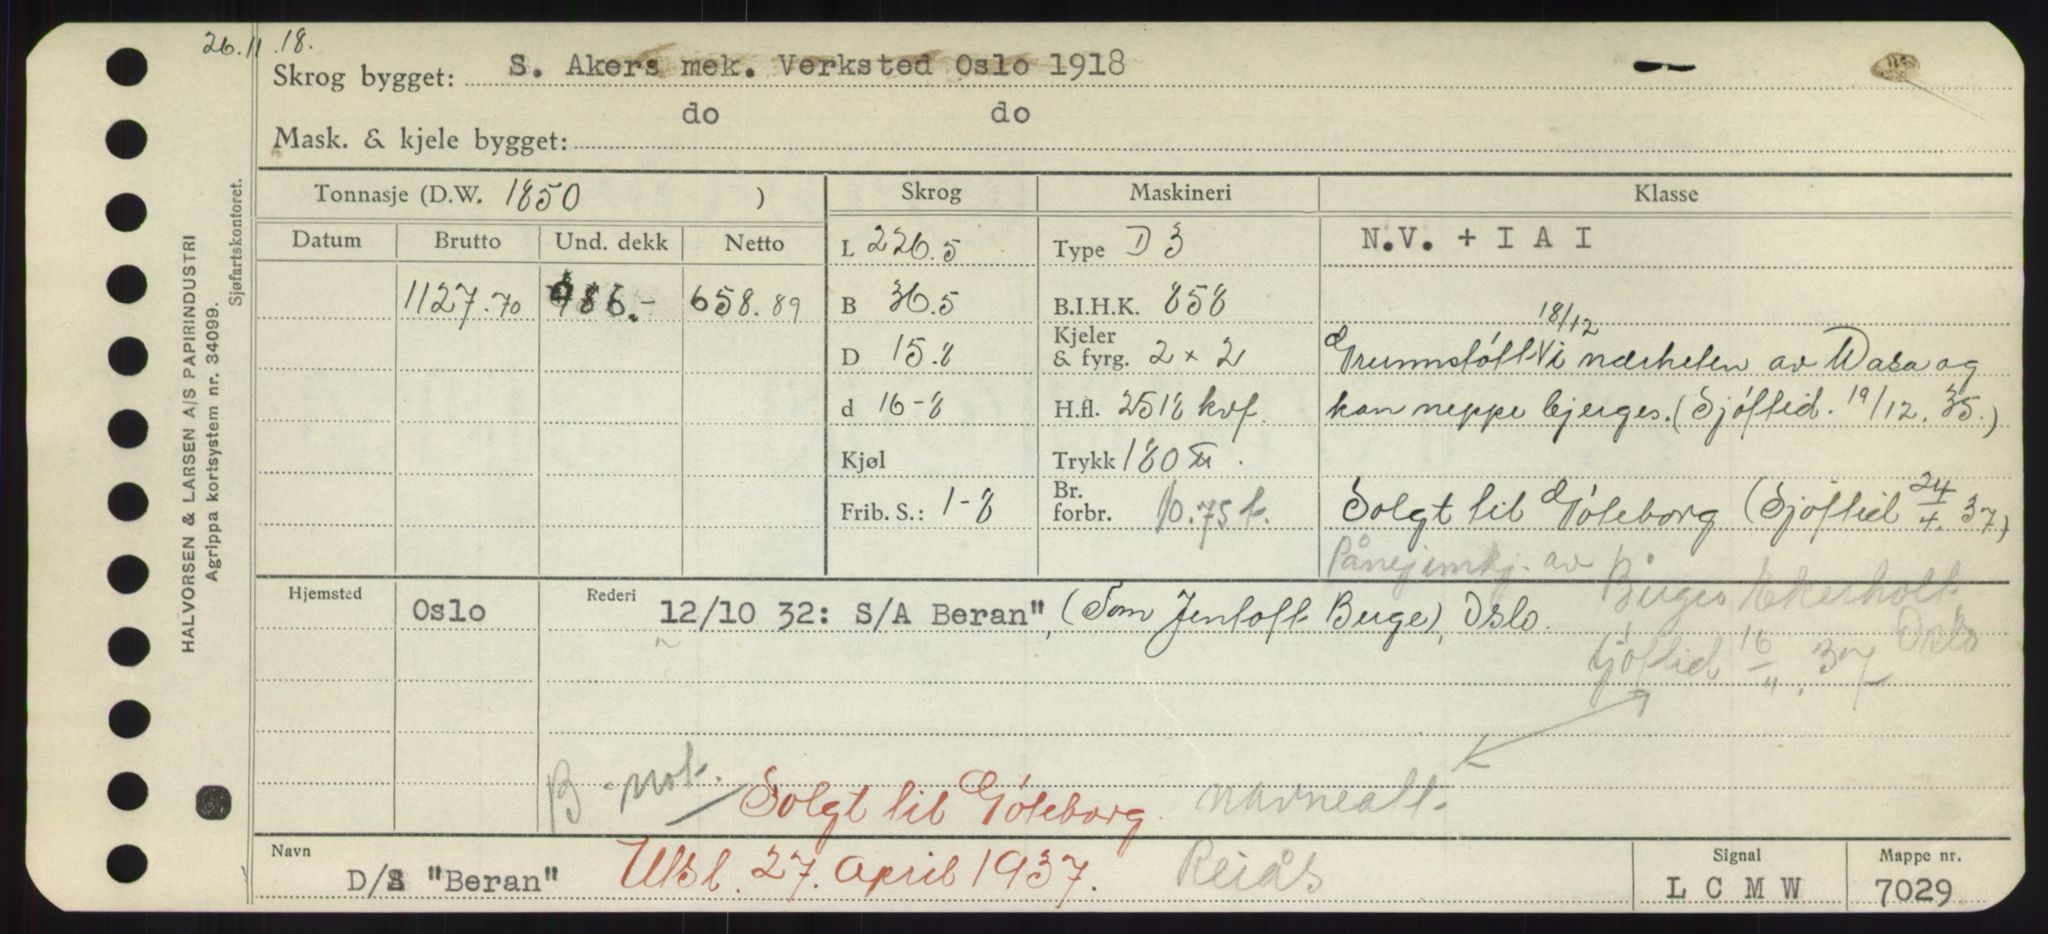 26.11.18.
Skrog bygget: S. Akers mek. Verksted Oslo 1918
do do
Mask. & kjele bygget:
Tonnasje (D.W. 1850 ) Skrog Maskineri Klasse
Datum Brutto Und. dekk Netto L 226.5 Type D 3 N.V. + I A I
1127.70 986.- 658.89 B 36.5 B.I.H.K. 858
D 15.8 Kjeler & fyrg. 2 x 2 Grunnstøtt 18/12 i nærheten av Wasa og
d 16-8 H.fl. 2518 kvf. kan neppe bjerges. (Sjøftid. 19/12. 35.)
Kjøl Trykk 180
Frib. S.: 1-8 Br. forbr. 10.75 t. Solgt til Gøteborg (Sjøftid 24/4. 37)
av Birger Ekerholt
Hjemsted Oslo Rederi 12/10 32: S/A Beran", (Tom Jentoft Berge), Oslo.
Oslo
Sjøftid 16/11. 37
B-not. Solgt til Gøteborg. navneatt.
Navn D/S "Beran" Utsl. 27. april 1937. Reiås
Signal L C M W
Mappe nr. 7029
HALVORSEN & LARSEN A/S PAPIRINDUSTRI
Agrippa kortsystem nr. 34099.
Sjøfartskontoret.